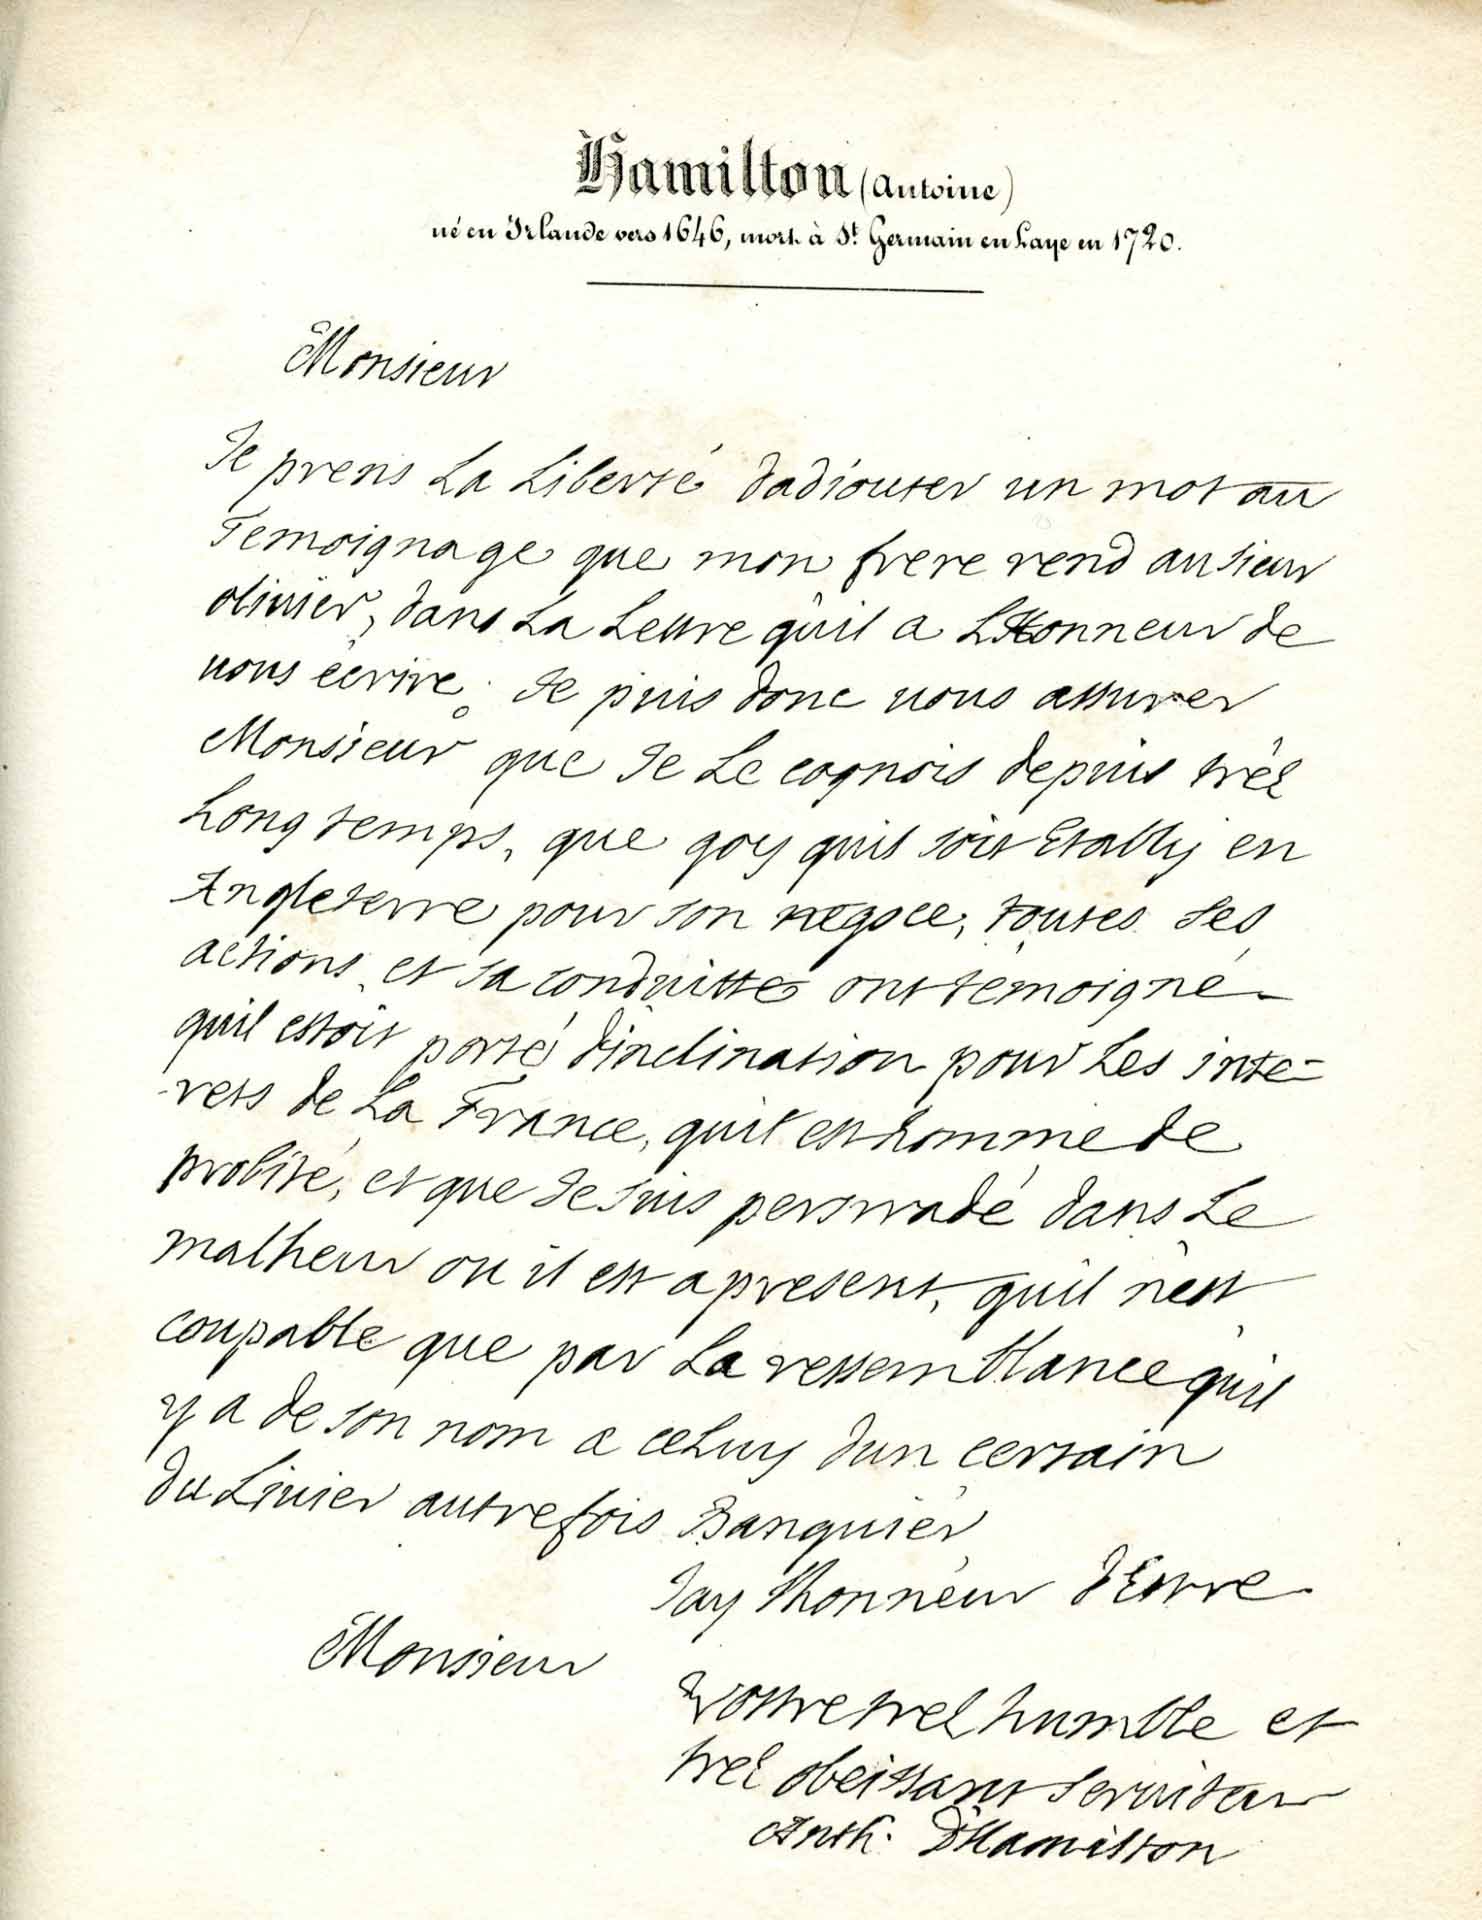 Hamilton (Antoine)
né en Irlande vers 1646, mort à St. Germain en Laye en 1720.
Monsieur
Je prens La Liberté dadiouter un mot au
Temoignage que mon frere rend au sieur
olivier, dans La Lettre qu'il a L'Honneur de
vous ècrire. Je puis donc vous assurer
Monsieur que Je Le cognois depuis trés
Longtemps, que qoy quil soit Etably en
Angleterre pour son negoce, toutes ses
actions et sa conduitte ont temoigné
quil estoit porté d'inclination pour Les inte-
-rets de La France, quil est homme de
probité, et que Je suis perswadé dans Le
malheur ou il est apresent, quil n'est
coupable que par La ressemblance quil
y a de son nom a celuy dun certain
du Livier autrefois Banquier
Jay lhonneur dEstre
Monsieur
Vostre tres humble et
tres obeissant serviteur
Anth. D'Hamilton